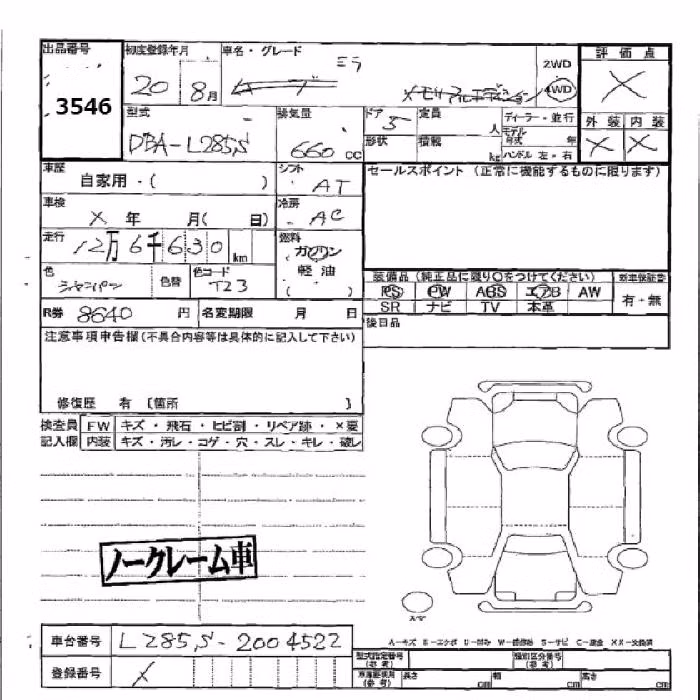 出品番号 初度登録年月 車名・グレード 評価点
3546 20 8月 ミラ 2WD 4WD X
メモリアルエディション
型式 排気量 ドア 定員 ディーラー・並行 外装 内装
DBA-L285S 660 cc 5 人 モデル年式 年 X X
形状 積載 kg ハンドル 左・右
車歴 シフト セールスポイント (正常に機能するものに限ります)
自家用・( ) AT
車検 冷房
X 年 月( 日) AC
走行 燃料
12万6千630 km ガソリン
軽油
( )
色 色替 色コード 装備品 (純正品に限り○をつけてください) 新車保証書
シャンパン T23 PS PW ABS エアB AW 有・無
SR ナビ TV 本革
R券 8640 円 名変期限 月 日 後日品
注意事項申告欄(不具合内容等は具体的に記入して下さい)
修復歴 有 [箇所 ]
検査員 FW キズ・飛石・ヒビ割・リペア跡・X要
記入欄 内装 キズ・汚レ・コゲ・穴・スレ・キレ・破レ
ノークレーム車
スペア
車台番号 L285S-2004522
A-キズ E-エクボ U-凹み W-補修跡 S-サビ C-腐食 XX-交換済
登録番号 X
型式指定番号 (参考) 類別区分番号 (参考)
長さ cm 幅 cm 高さ cm